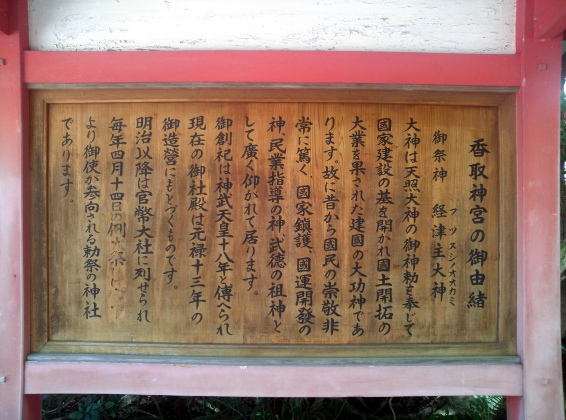 香取神宮の御由緒
フツヌシノオオカミ
御祭神　経津主大神
大神は天照大神の御神勅を奉じて
國家建設の基を開かれ國土開拓の
大業を果された建国の大功神であ
ります。故に昔から國民の崇敬非
常に篤く、國家鎮護、國運開発の
神、民業指導の神、武徳の祖神と
して廣く仰がれて居ります。
御創祀は神武天皇十八年と傳へられ
現在の御社殿は元禄十三年の
御造営にもとづくものです。
明治以降は官幣大社に列せられ
毎年四月十四日の例祭には、
より御使が参向される勅祭の神社
であります。